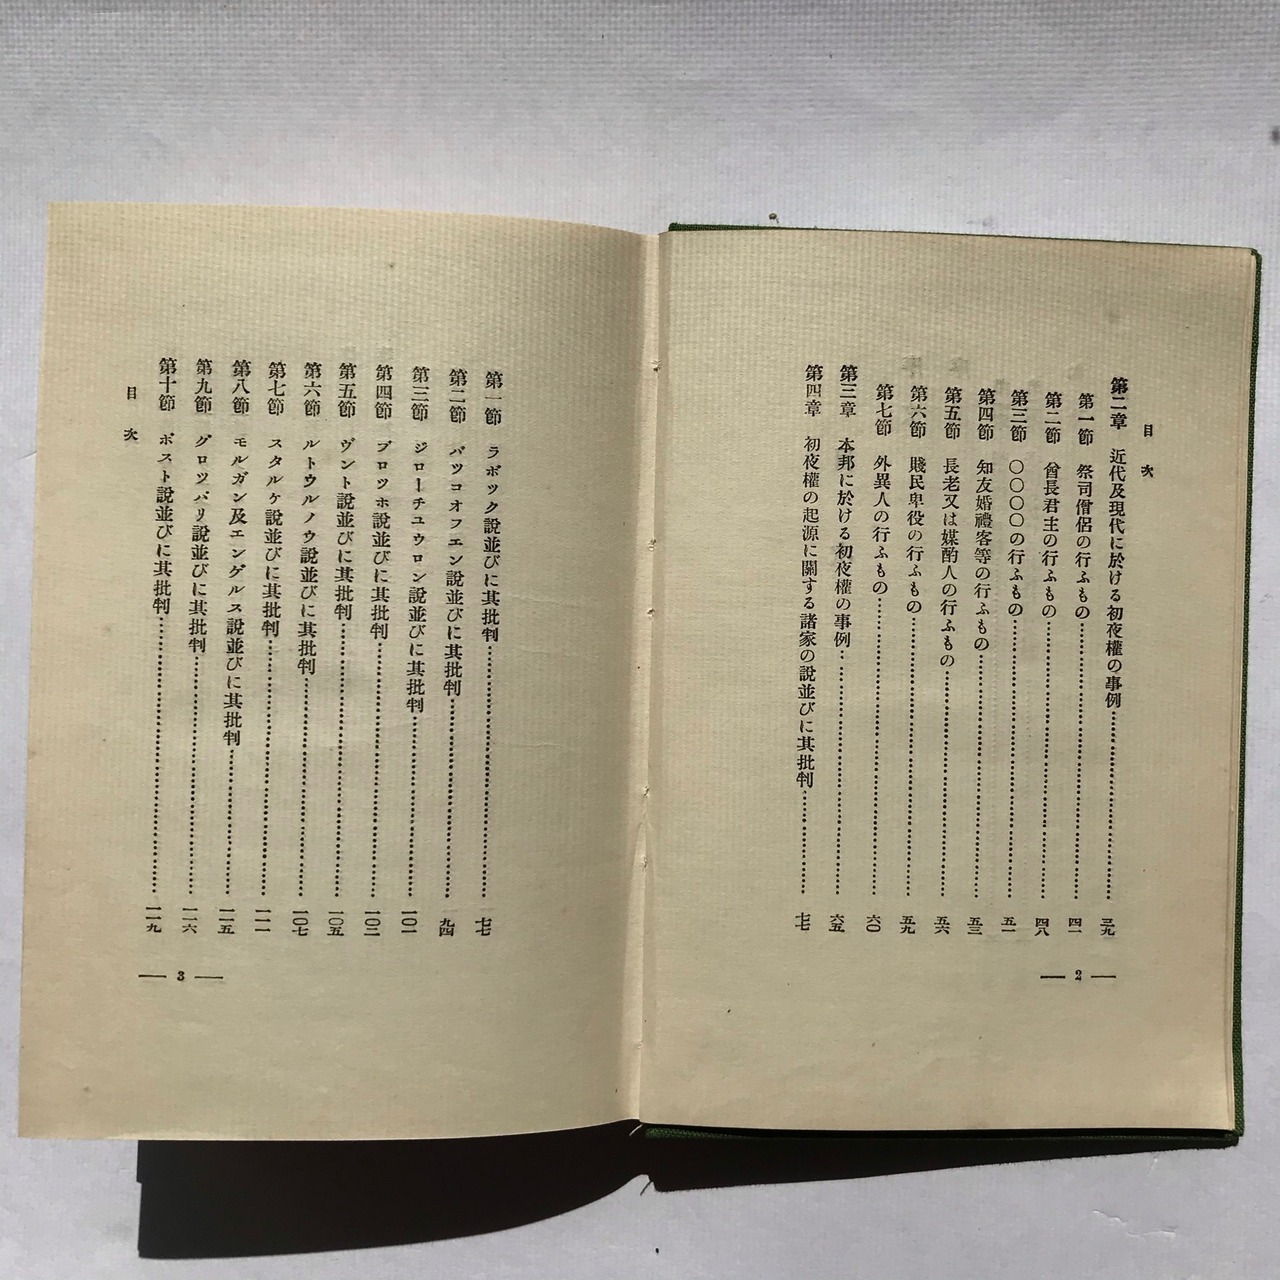 目次
第二章 近代及現代に於ける初夜權の事例……三九
第一節 祭司僧侶の行ふもの……四一
第二節 酋長君主の行ふもの……四八
第三節 〇〇〇〇の行ふもの……五一
第四節 知友婚禮客等の行ふもの……五三
第五節 長老又は媒酌人の行ふもの……五六
第六節 賤民卑役の行ふもの……五九
第七節 外異人の行ふもの……六〇
第三章 本邦に於ける初夜權の事例……六五
第四章 初夜權の起源に關する諸家の說並びに其批判……七七
— 2 —
第一節 ラボック說並びに其批判……七七
第二節 バツコオフエン說並びに其批判……九四
第三節 ジローチユウロン說並びに其批判……一〇一
第四節 ブロツホ說並びに其批判……一〇二
第五節 ヴント說並びに其批判……一〇五
第六節 ルトウルノウ說並びに其批判……一〇七
第七節 スタルケ說並びに其批判……一一一
第八節 モルガン及エンゲルス說並びに其批判……一一五
第九節 グロツパリ說並びに其批判……一一六
第十節 ポスト說並びに其批判……一一九
目次
— 3 —